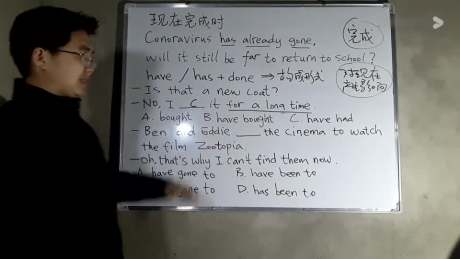 现在完成时
Conoravirus has already gone,
will it still be far to return to school?
have / has + done → 构成形式
- Is that a new coat?
- No, I C it for a long time.
A. bought B have bought C have had
- Ben and Eddie ___ the cinema to watch
the film Zootopia.
- oh, that's why I can't find them now.
A have gone to B. have been to
ne to D. has been to
完成
对现在